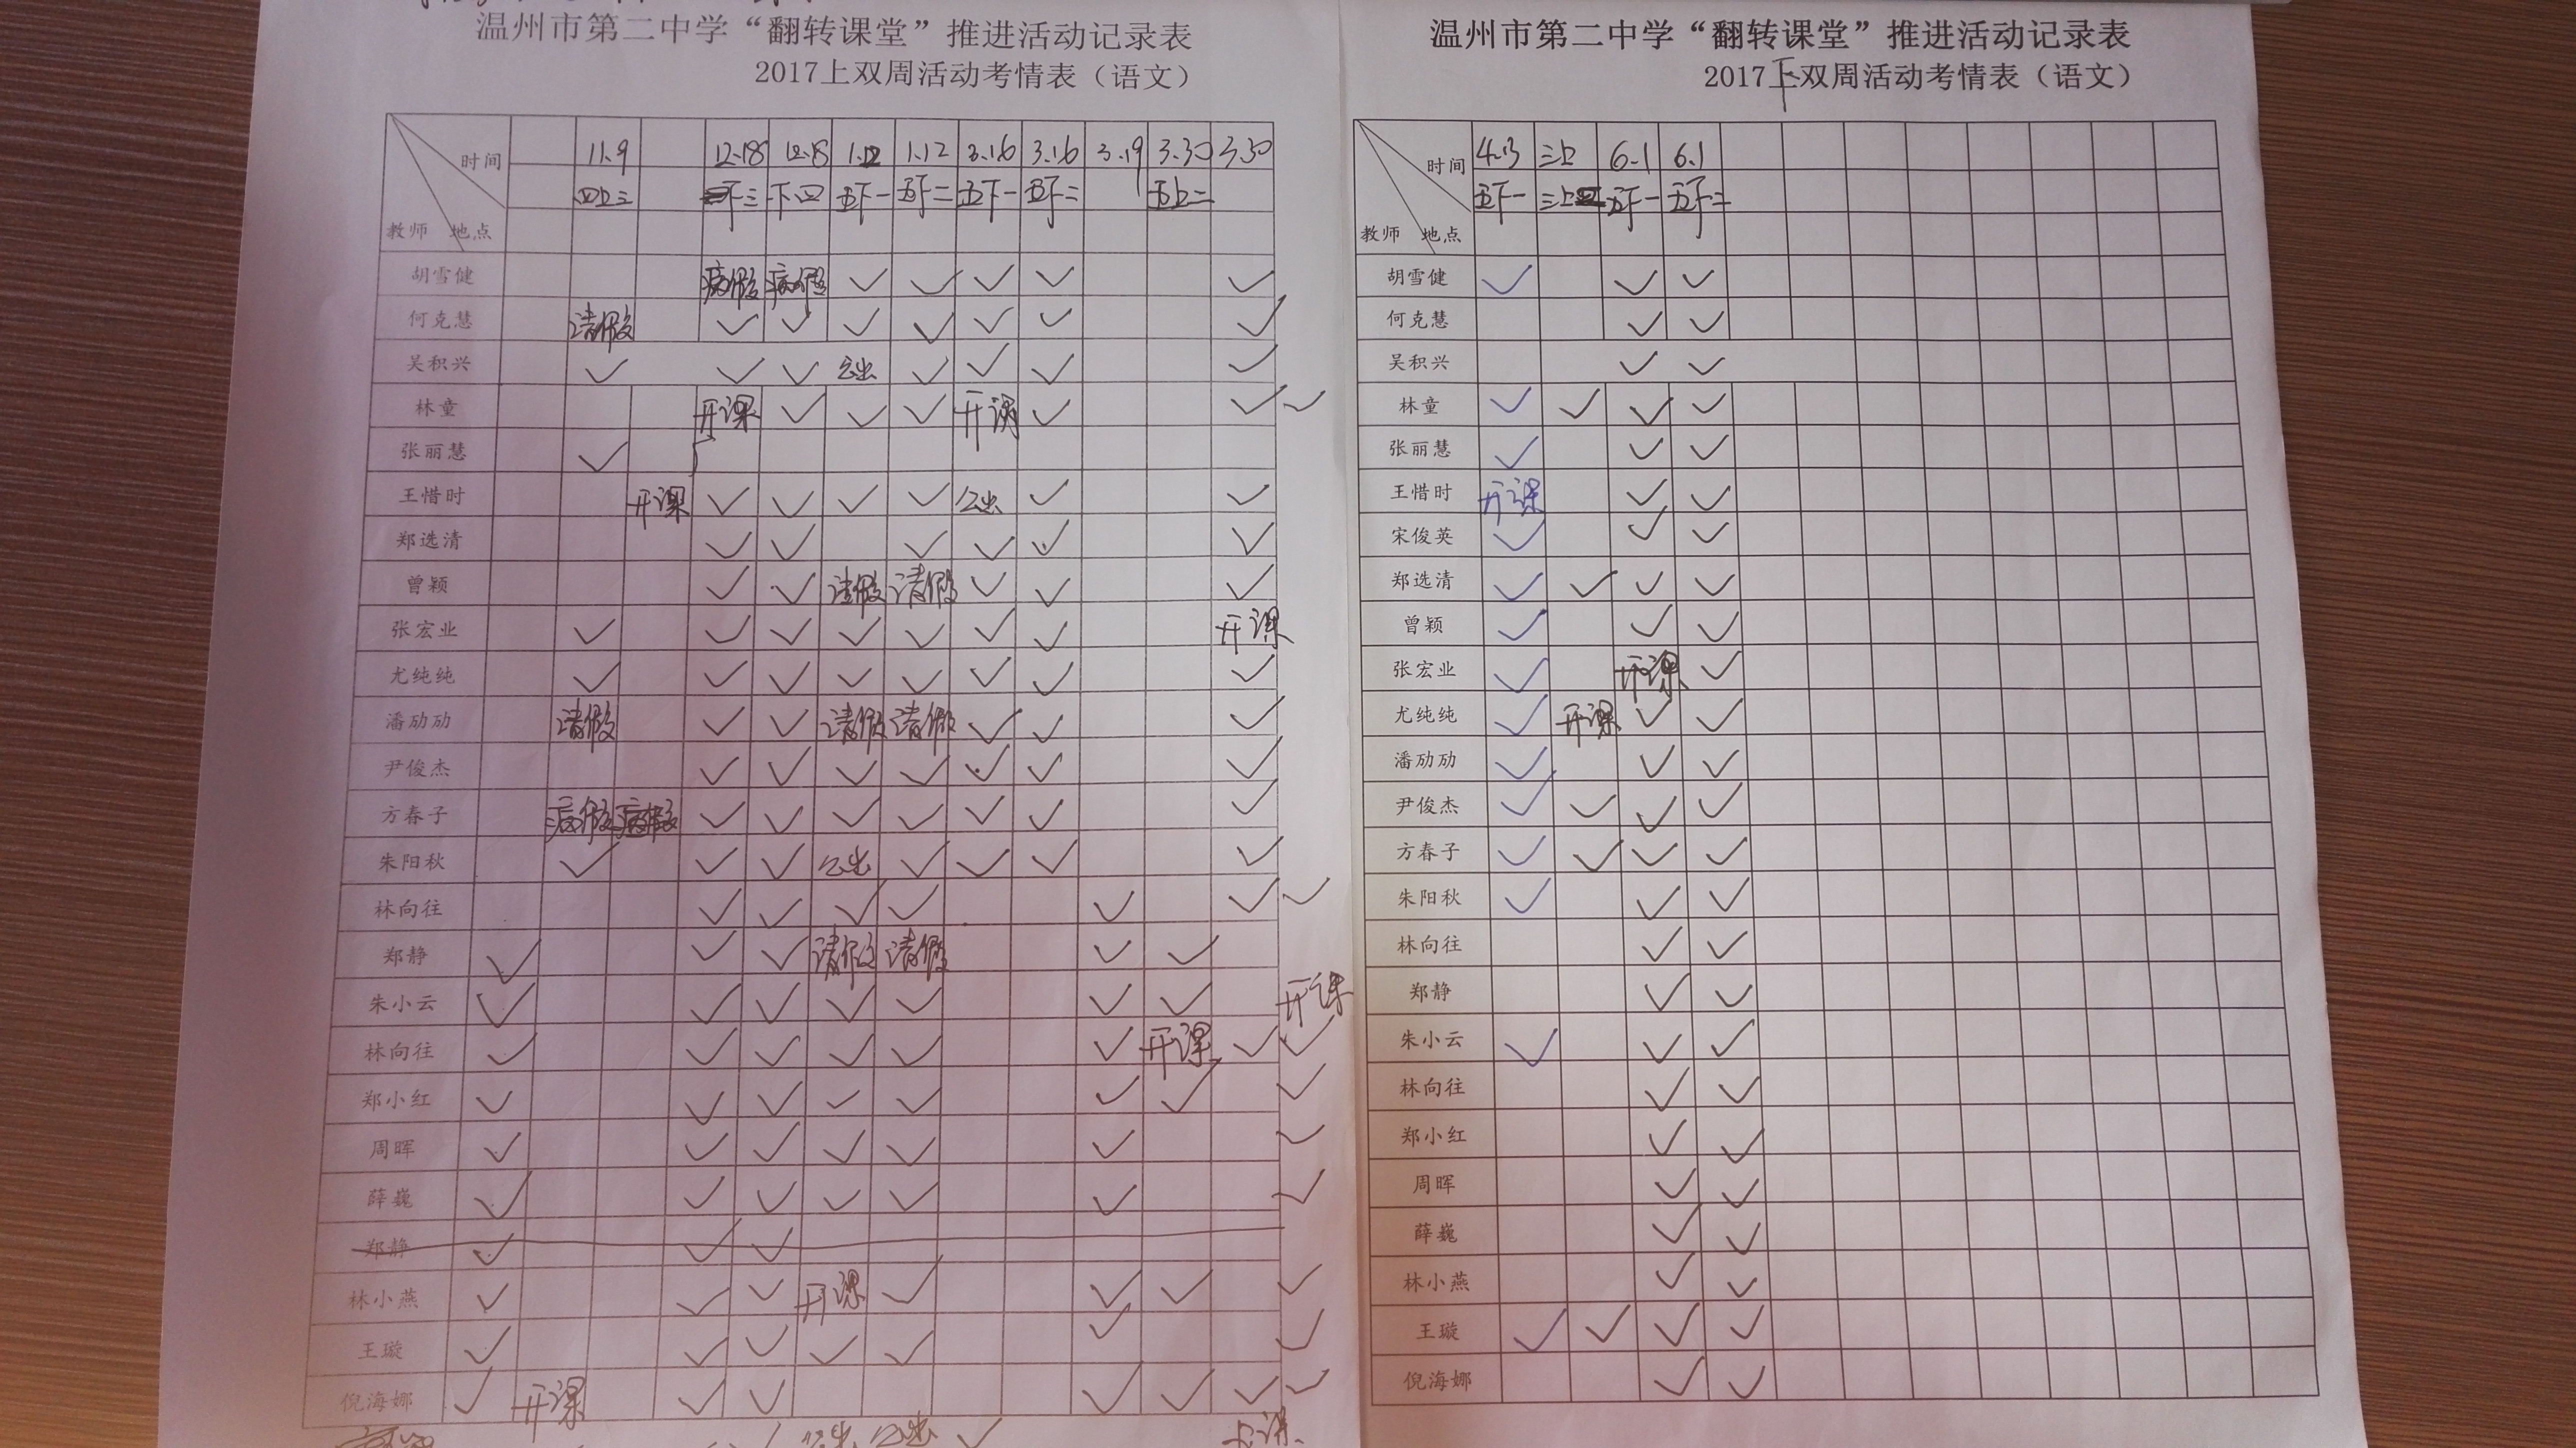 温州市第二中学“翻转课堂”推进活动记录表
2017上双周活动考情表（语文）
时间 11.9 12.18 12.18 1.12 1.12 3.16 3.16 3.19 3.30 3.30
四上三 下三 下四 五下一 五下二 五下一 五下二 五上二
教师 地点
胡雪健 病假 病假 ✓ ✓ ✓ ✓ ✓
何克慧 请假 ✓ ✓ ✓ ✓ ✓ ✓ ✓
吴积兴 ✓ ✓ ✓ 公出 ✓ ✓ ✓ ✓
林童 开课 ✓ ✓ ✓ 开课 ✓ ✓ ✓
张丽慧 ✓
王惜时 开课 ✓ ✓ ✓ ✓ 公出 ✓ ✓
郑选清 ✓ ✓ ✓ ✓ ✓ ✓
曾颖 ✓ ✓ 请假 请假 ✓ ✓ ✓
张宏业 ✓ ✓ ✓ ✓ ✓ ✓ ✓ 开课
尤纯纯 ✓ ✓ ✓ ✓ ✓ ✓ ✓ ✓
潘劢劢 请假 ✓ ✓ 请假 请假 ✓ ✓ ✓
尹俊杰 ✓ ✓ ✓ ✓ ✓ ✓ ✓
方春子 病假 病假 ✓ ✓ ✓ ✓ ✓ ✓ ✓
朱阳秋 ✓ ✓ ✓ 公出 ✓ ✓ ✓ ✓
林向往 ✓ ✓ ✓ ✓ ✓ ✓ ✓
郑静 ✓ ✓ ✓ 请假 请假 ✓ ✓
朱小云 ✓ ✓ ✓ ✓ ✓ ✓ ✓ 开课
林向往 ✓ ✓ ✓ ✓ ✓ ✓ 开课 ✓ ✓
郑小红 ✓ ✓ ✓ ✓ ✓ ✓ ✓ ✓
周晖 ✓ ✓ ✓ ✓ ✓ ✓ ✓
薛巍 ✓ ✓ ✓ ✓ ✓ ✓ ✓
郑静 ✓ ✓ ✓
林小燕 ✓ ✓ ✓ 开课 ✓ ✓ ✓ ✓
王璇 ✓ ✓ ✓ ✓ ✓ ✓ ✓
倪海娜 ✓ 开课 ✓ ✓ ✓ ✓ ✓ ✓
公出 公出 ✓
温州市第二中学“翻转课堂”推进活动记录表
2017下双周活动考情表（语文）
时间 4.13 三上 6.1 6.1
五下一 三上 五下一 五下二
教师 地点
胡雪健 ✓ ✓ ✓
何克慧 ✓ ✓
吴积兴 ✓ ✓
林童 ✓ ✓ ✓ ✓
张丽慧 ✓ ✓ ✓
王惜时 开课 ✓ ✓
宋俊英 ✓ ✓ ✓
郑选清 ✓ ✓ ✓ ✓
曾颖 ✓ ✓ ✓
张宏业 ✓ 开课 ✓
尤纯纯 ✓ 开课 ✓ ✓
潘劢劢 ✓ ✓ ✓
尹俊杰 ✓ ✓ ✓ ✓
方春子 ✓ ✓ ✓ ✓
朱阳秋 ✓ ✓ ✓
林向往 ✓ ✓
郑静 ✓ ✓
朱小云 ✓ ✓ ✓
林向往 ✓ ✓
郑小红 ✓ ✓
周晖 ✓ ✓
薛巍 ✓ ✓
林小燕 ✓ ✓
王璇 ✓ ✓ ✓ ✓
倪海娜 ✓ ✓